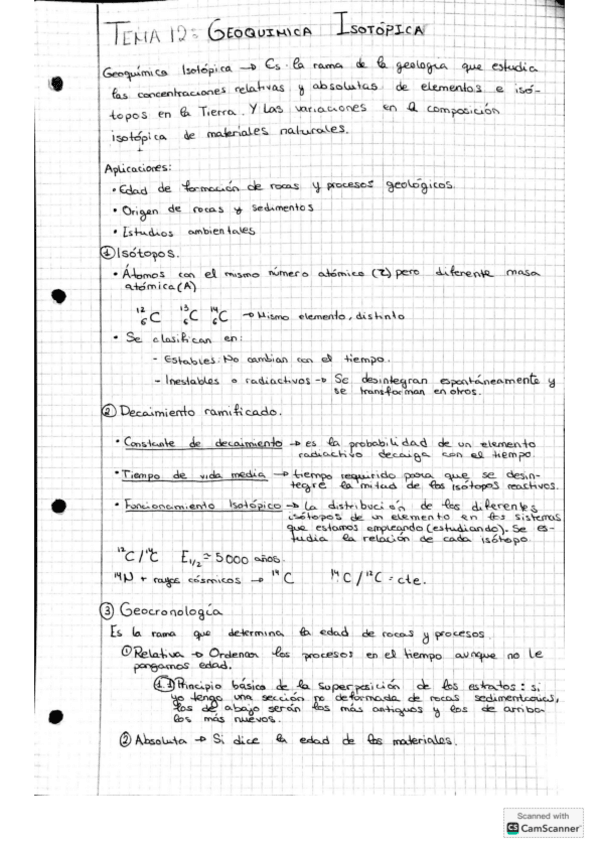 TEMA 12: GEOQUIMICA ISOTÓPICA
Geoquímica Isotópica → Es la rama de la geología que estudia
las concentraciones relativas y absolutas de elementos e isó-
topos en la Tierra. Y las variaciones en la composición
isotópica de materiales naturales.
Aplicaciones:
• Edad de formación de rocas y procesos geológicos.
• Origen de rocas y sedimentos
• Estudios ambientales
① Isótopos.
• Átomos con el mismo número atómico (Z) pero diferente masa
atómica (A)
¹²₆C ¹³₆C ¹⁴₆C → Mismo elemento, distinto
• Se clasifican en:
- Estables: No cambian con el tiempo.
- Inestables o radiactivos → Se desintegran espontáneamente y
se transforman en otros.
② Decaimiento ramificado.
• Constante de decaimiento → es la probabilidad de un elemento
radiactivo decaiga con el tiempo.
• Tiempo de vida media → tiempo requerido para que se desin-
tegre la mitad de los isótopos reactivos.
• Funcionamiento Isotópico → la distribución de los diferentes
isótopos de un elemento en los sistemas
que estamos empleando (estudiando). Se es-
tudia la relación de cada isótopo.
¹²C/¹⁴C E₁/₂ = 5000 años.
¹⁴N + rayos cósmicos → ¹⁴C ¹⁴C/¹²C = cte.
③ Geocronología
Es la rama que determina la edad de rocas y procesos.
① Relativa → Ordenar los procesos en el tiempo aunque no le
pongamos edad.
1.1 Principio básico de la superposición de los estratos: si
yo tengo una sección no deformada de rocas sedimentarias,
los de abajo serán los más antiguos y los de arriba
los más nuevos.
② Absoluta → Si dice la edad de los materiales.
Scanned with
CS CamScanner